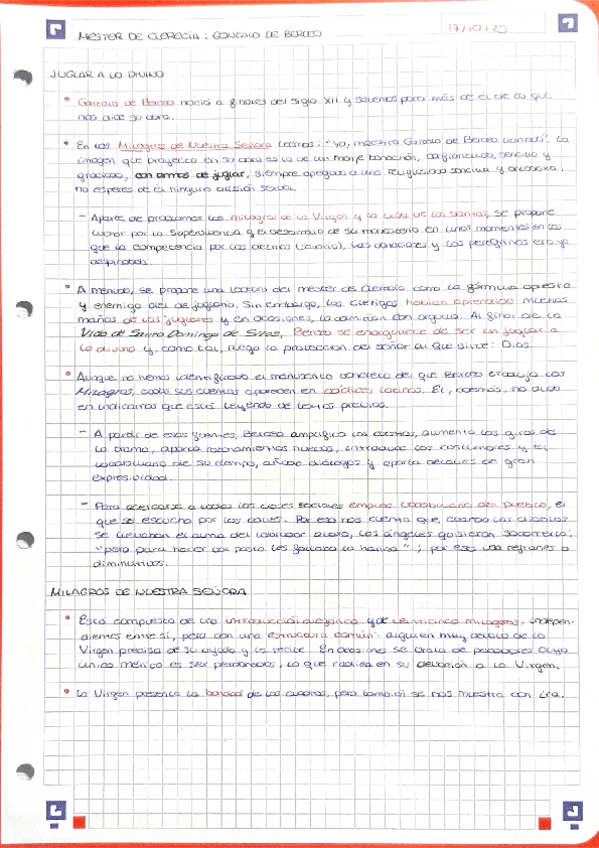 MESTER DE CLERECÍA: GONZALO DE BERCEO 17/10/25
JUGLAR A LO DIVINO
• Gonzalo de Berceo nació a finales del siglo XII y sabemos poco más de él de lo que
nos dice su obra.
• En los Milagros de Nuestra Señora leemos: "Yo, maestro Gonzalo de Berceo llamado". La
imagen que proyecta en su obra es la de un monje bonachón, campechano, sencillo y
gracioso, con armas de juglar, siempre apegado a una religiosidad sencilla y ortodoxa;
no esperes de él ninguna alusión sexual.
- Aparte de proclamar los milagros de la Virgen y la vida de los santos, se propone
luchar por la supervivencia y el desarrollo de su monasterio en unos momentos en los
que la competencia por los diezmos (salario), las donaciones y los peregrinos era ya
despiadada.
• A menudo, se propone una lectura del mester de clerecía como la fórmula opuesta
y enemiga del de juglaría. Sin embargo, los clérigos habían aprendido muchas
mañas de los juglares y en ocasiones, lo admitían con orgullo. Al final de la
Vida de Santo Domingo de Silos, Berceo se enorgullece de ser un juglar a
lo divino y, como tal, ruega la protección del señor al que sirve: Dios.
• Aunque no hemos identificado el manuscrito concreto del que Berceo tradujo los
Milagros, todos sus cuentos aparecen en códices latinos. Él, además, no duda
en indicarnos que está leyendo de textos previos.
- A partir de esas fuentes, Berceo amplifica los cuentos, aumenta los giros de
la trama, aporta razonamientos nuevos, introduce las costumbres y el
vocabulario de su tiempo, añade diálogos y aporta detalles de gran
expresividad.
- Para acercarse a todas las clases sociales emplea vocabulario del pueblo, el
que se escucha por las calles. Por eso nos cuenta que, cuando los diablos
se llevaban el alma del labrador avaro, los ángeles quisieron socorrerlo:
"pero para hacer tal pasta les faltaba la harina"; por eso usa refranes o
diminutivos.
MILAGROS DE NUESTRA SEÑORA
• Está compuesta de una introducción alegórica y de veinticinco milagros, indepen-
dientes entre sí, pero con una estructura común: alguien muy devoto de la
Virgen precisa de su ayuda y la recibe. En ocasiones se trata de pecadores cuyo
único mérito es ser perdonados, lo que radica en su devoción a la Virgen.
• La Virgen presenta la bondad de las madres, pero también se nos muestra con ira.